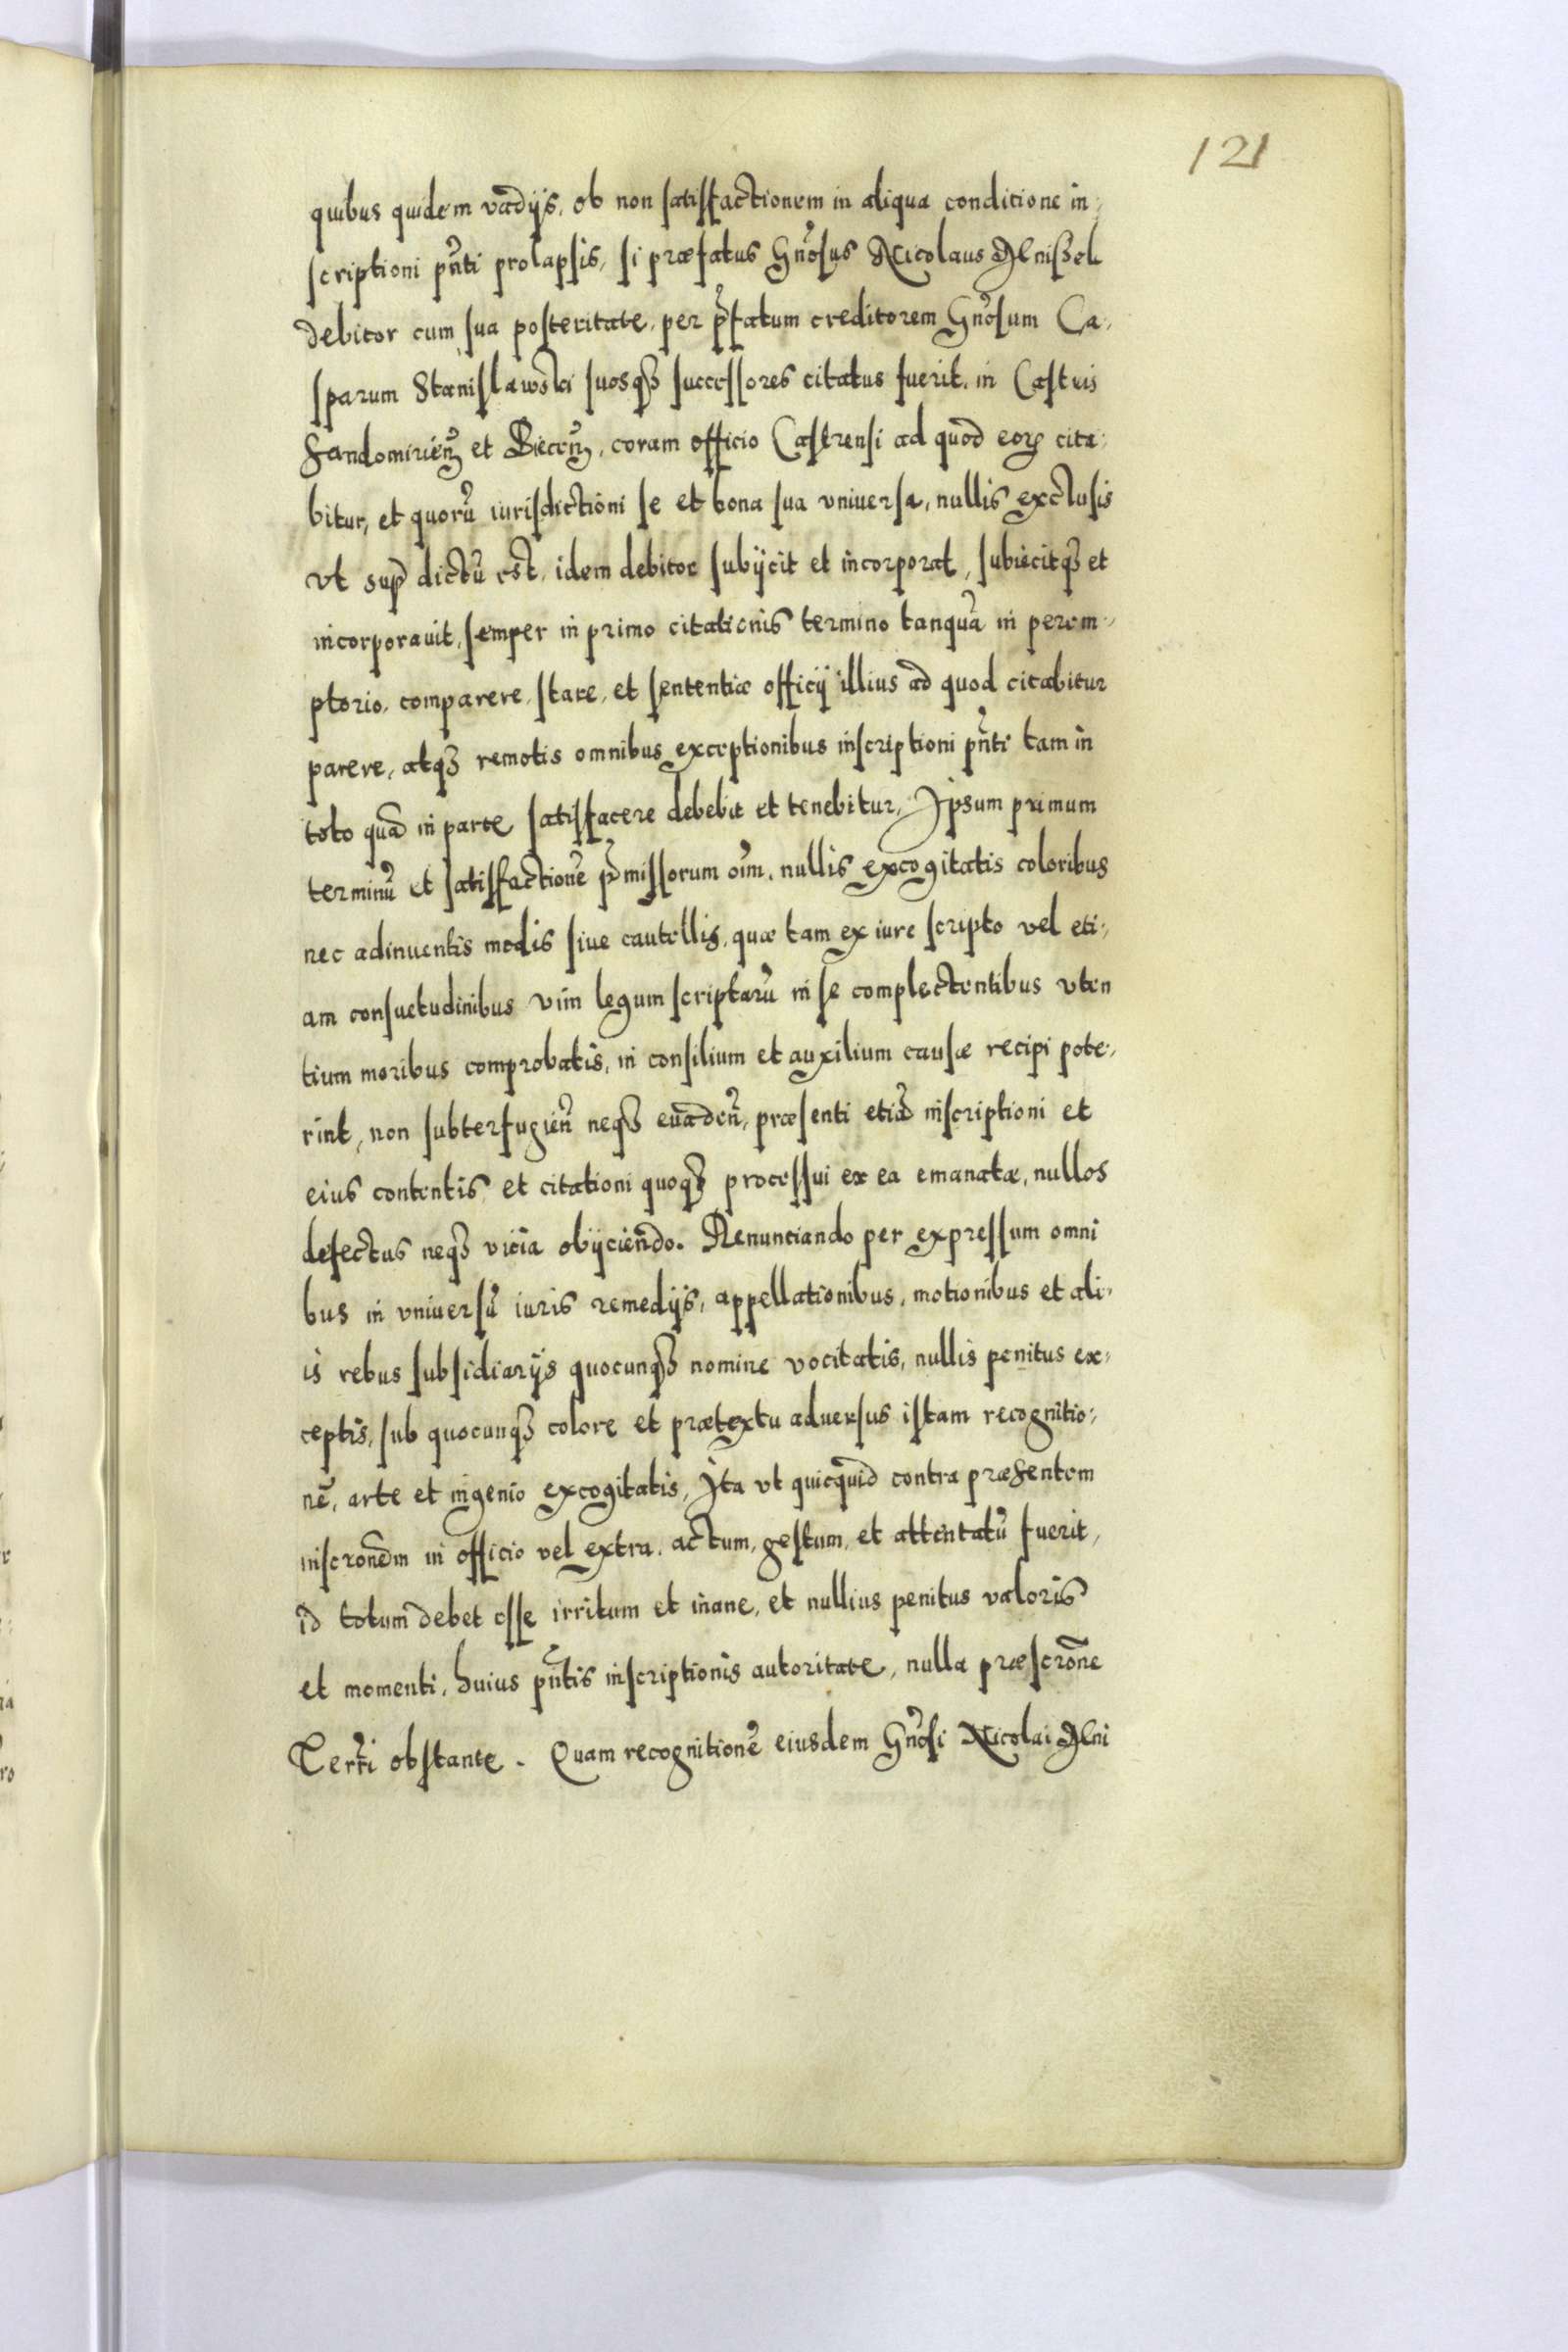 121
quibus quidem vadijs, ob non satisfactionem in aliqua conditione in,
scriptioni pñti prolapsis, si præfatus Gñosus Nicolaus Gnißel
debitor cum sua posteritate, per p̃fatum creditorem Gñosum Ca,
sparum Stanislawski suosqȝ successores citatus fuerit, in Castris
Sandomirieñ et Bieceñ, coram officio Castrensi ad quod eoꝝ cita,
bitur, et quorũ iurisdictioni se et bona sua vniuersa, nullis exclusis
vt sup̃ dictũ est, idem debitor subijcit et incorporat, subiecitqȝ et
incorporauit, semper in primo citationis termino tanquã in perem,
ptorio, comparere, stare, et sententiæ officij illius ad quod citabitur
parere, atqȝ remotis omnibus exceptionibus inscriptioni pñti tam in
toto quã in parte satisfacere debebit et tenebitur, Ipsum primum
terminũ et satisfactionẽ p̃missorum oĩm, nullis excogitatis coloribus
nec adinuentis modis siue cautellis, quæ tam ex iure scripto vel eti,
am consuetudinibus vim legum scriptarũ in se complectentibus vten
tium moribus comprobatis, in consilium et auxilium causæ recipi pote,
rint, non subterfugieñ neqȝ euadeñ, præsenti etiã inscriptioni et
eius contentis et citationi quoqȝ processui ex ea emanatæ, nullos
defectus neqȝ vicia obijciendo. Renunciando per expressum omni
bus in vniuersũ iuris remedijs, appellationibus, motionibus et ali,
is rebus subsidiarijs quocunqȝ nomine vocitatis, nullis penitus ex,
ceptis, sub quocunqȝ colore et prætextu aduersus istam recognitio,
nẽ, arte et ingenio excogitatis, Ita vt quicquid contra præsentem
inscrõnem in officio vel extra, actum, gestum, et attentatũ fuerit,
id totum debet esse irritum et inane, et nullius penitus valoris
et momenti, huius pñtis inscriptionis autoritate, nulla præscrõne
Terr̃i obstante. Quam recognitionẽ eiusdem Gñosi Nicolai Gni